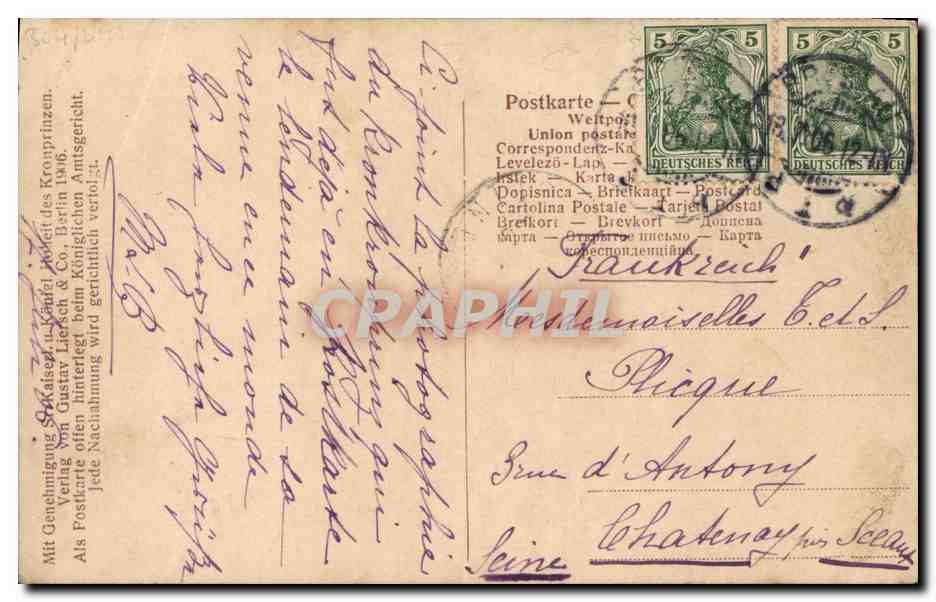 5 5
5 5
DEUTSCHES REICH
DEUTSCHES REICH
Postkarte —
Weltpos
Union postale
Correspondenz-Ka
Levelező-Lap
Karte
Dopisnica — Briefkaart — Postcard
Cartolina Postale — Tarjeta Postal
Brefkort — Brevkort — Дописна
карта — Открытое письмо — Карта
кореспонденційна
„Frankreich"
Mesdemoiselles E. et S.
Plicque
3 rue d'Antony
Chatenay près Sceaux
Seine
Ci joint la photographie
du Kronkronhung qui
fut déjà en Postkarte
le lendemain de sa
venue en ce monde
Viele herzliche Grüße
Mit Genehmigung Sr. Kaiserl. u. Königl. Hoheit des Kronprinzen.
Verlag von Gustav Liersch & Co., Berlin 1906.
Als Postkarte offen hinterlegt beim Königlichen Amtsgericht.
Jede Nachahmung wird gerichtlich verfolgt.
CPAPHIL